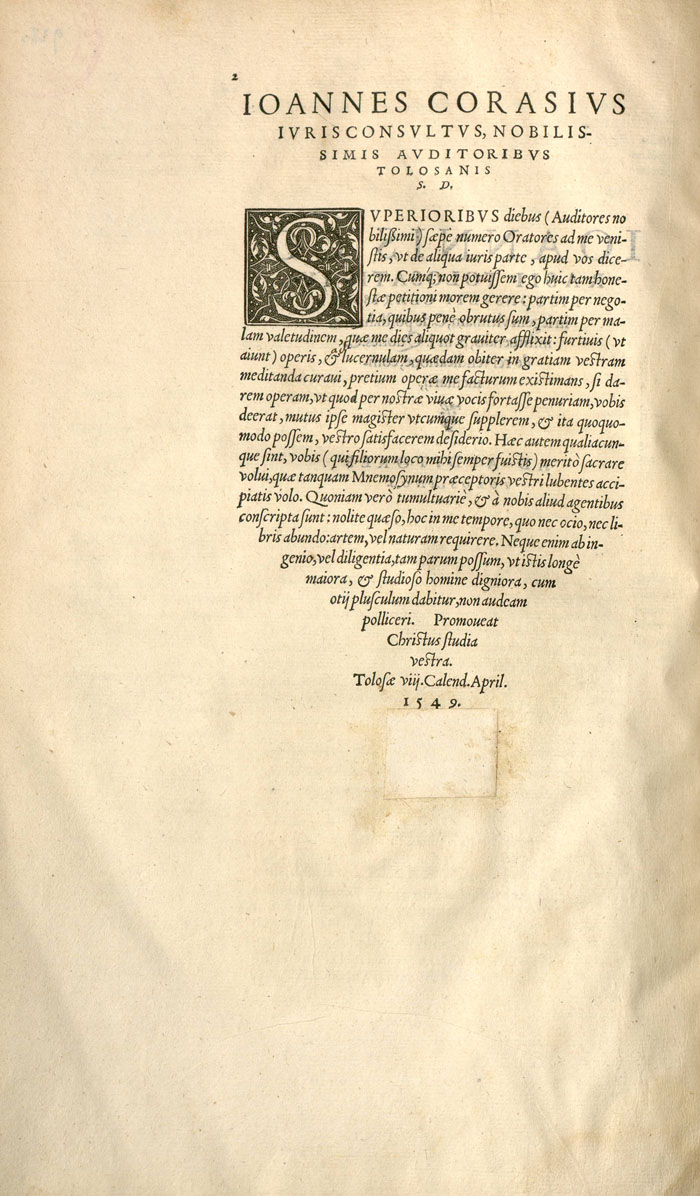 2
IOANNES CORASIVS
IVRISCONSVLTVS, NOBILIS-
SIMIS AVDITORIBVS
TOLOSANIS
S. D.
SVPERIORIBVS diebus (Auditores no
bilißimi) sæpe numero Oratores ad me veni-
stis, vt de aliqua iuris parte, apud vos dice-
rem. Cumq́; non potuissem ego huic tam hone-
stæ petitioni morem gerere: partim per nego-
tia, quibus penè obrutus sum, partim per ma-
lam valetudinem, quæ me dies aliquot grauiter afflixit: furtiuis (vt
aiunt) operis, & lucernulam, quædam obiter in gratiam vestram
meditanda curaui, pretium operæ me facturum existimans, si da-
rem operam, vt quod per nostræ viuæ vocis fortasse penuriam, vobis
deerat, mutus ipse magister vtcumque supplerem, & ita quoquo-
modo possem, vestro satisfacerem desiderio. Hæc autem qualiacun-
que sint, vobis (qui filiorum loco mihi semper fuistis) meritò sacrare
volui, quæ tanquam Mnemosynum præceptoris vestri lubentes acci-
piatis volo. Quoniam verò tumultuariè, & à nobis aliud agentibus
conscripta sunt: nolite quæso, hoc in me tempore, quo nec ocio, nec li-
bris abundo: artem, vel naturam requirere. Neque enim ab in-
genio, vel diligentia, tam parum possum, vt istis longè
maiora, & studioso homine digniora, cum
otij plusculum dabitur, non audeam
polliceri. Promoueat
Christus studia
vestra.
Tolosæ viij. Calend. April.
1549.